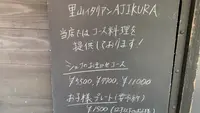 里山イタリアン AJIKURA
当店ではコース料理を
提供しております!
シェフのおまかせコース
¥5500, ¥7700, ¥11000
お子様プレート(要予約)
¥1500